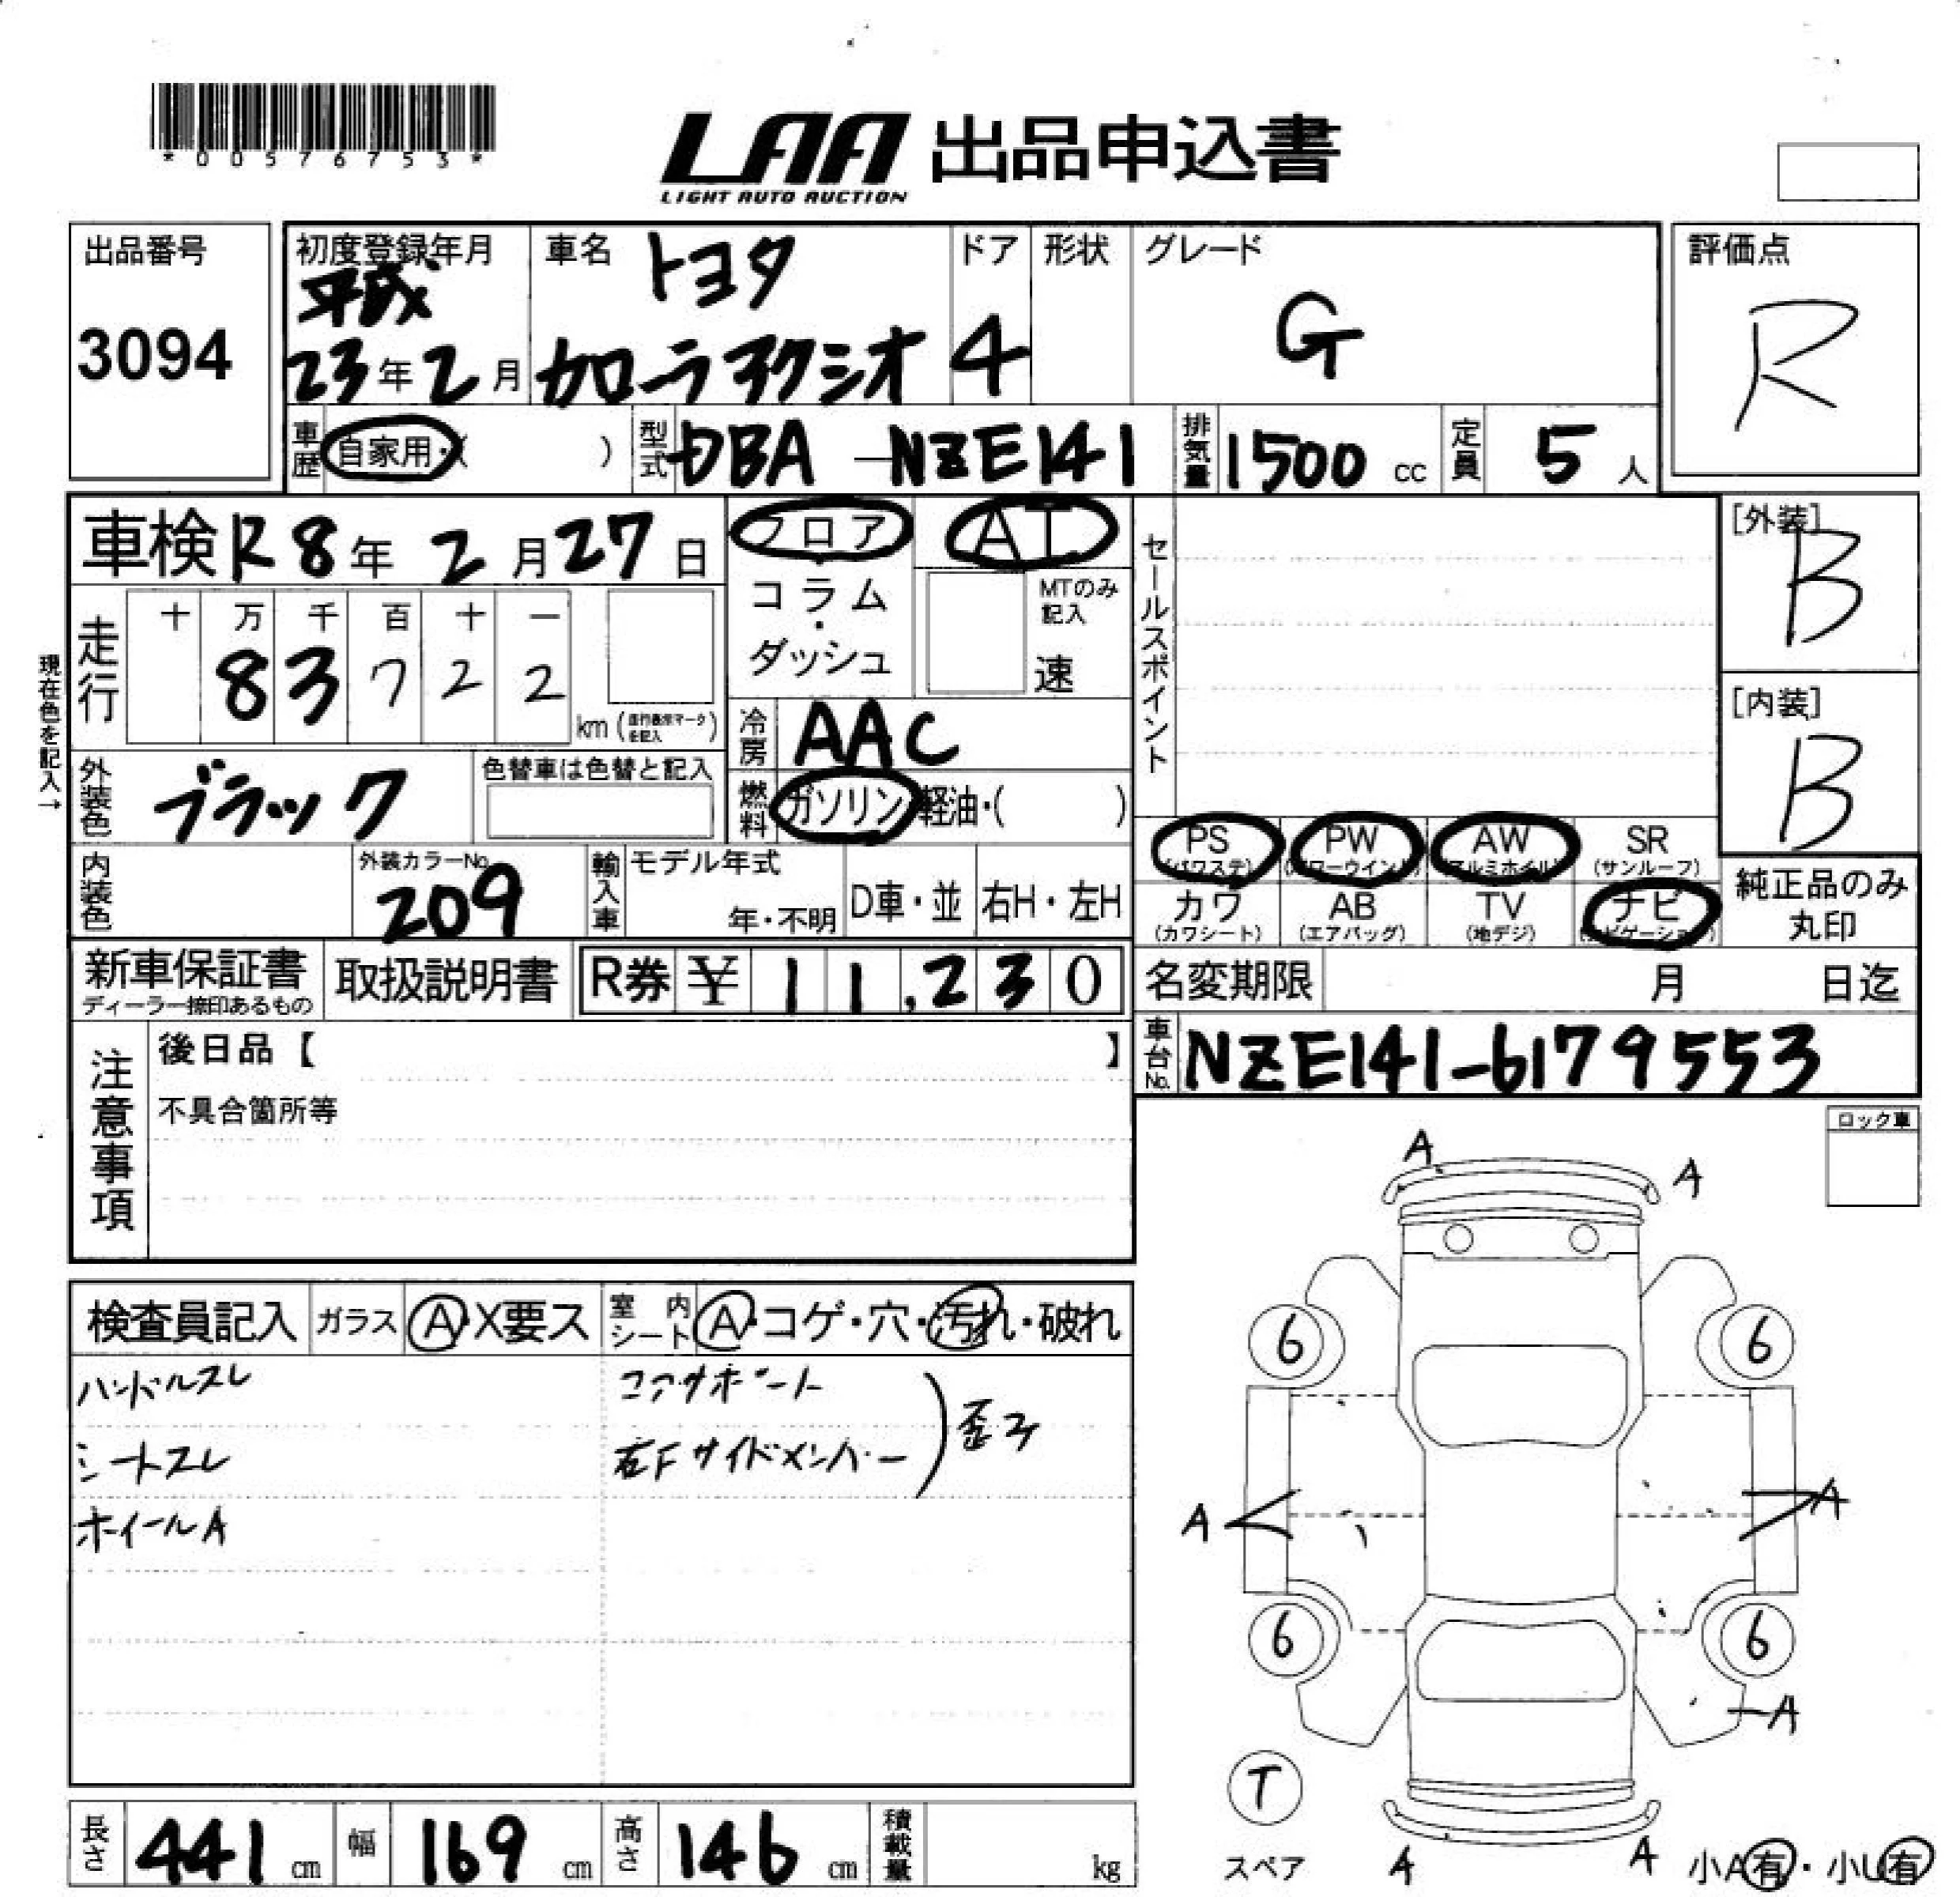 *00576753*
LAA 出品申込書
LIGHT AUTO AUCTION
出品番号
3094
初度登録年月
平成
23年2月
車名
トヨタ
カローラアクシオ
ドア
4
形状
グレード
G
評価点
R
車歴
自家用・( )
型式
DBA-NZE141
排気量
1500 cc
定員
5 人
車検 R8年 2月27日
フロア
・
コラム
・
ダッシュ
AT
MTのみ
記入
速
セールスポイント
[外装]
B
[内装]
B
現在色を記入→
走行
十 万 千 百 十 一
8 3 7 2 2
km (走行表示マークを記入)
冷房
AAC
外装色
ブラック
色替車は色替と記入
燃料
ガソリン・軽油・( )
PS
(パワステ)
PW
(パワーウインド)
AW
(アルミホイル)
SR
(サンルーフ)
内装色
外装カラーNo.
209
輸入車
モデル年式
年・不明
D車・並
右H・左H
カワ
(カワシート)
AB
(エアバッグ)
TV
(地デジ)
ナビ
(ナビゲーション)
純正品のみ
丸印
新車保証書
ディーラー捺印あるもの
取扱説明書
R券 ¥ 11,230
名変期限 月 日迄
注意事項
後日品【 】
不具合箇所等
車台No.
NZE141-6179553
ロック車
検査員記入
ガラス
A・X要ス
室内
シート
A・コゲ・穴・汚れ・破れ
ハンドルスレ
シートスレ
ホイールA
コアサポート
右Fサイドメンバー
歪み
A
A
6
6
A
A
6
6
A
T
スペア
A
A
小A有・小U有
長さ
441 cm
幅
169 cm
高さ
146 cm
積載量
kg